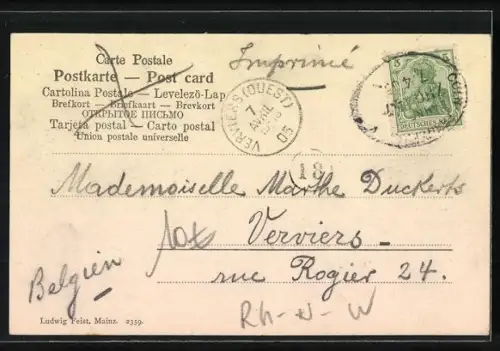 Carte Postale
Postkarte — Post card
Cartolina Postale — Levelező-Lap
Brefkort — Briefkaart — Brevkort
ОТКРЫТОЕ ПИСЬМО
Tarjeta postal — Carto postal
Union postale universelle
Imprimé
VERVIERS (OUEST)
AVRIL
05
5
DEUTSCHES
13
Mademoiselle Marthe Duckerts
Verviers –
rue Rogier 24.
Belgien
Rh-N-W
Ludwig Feist, Mainz. 2359.